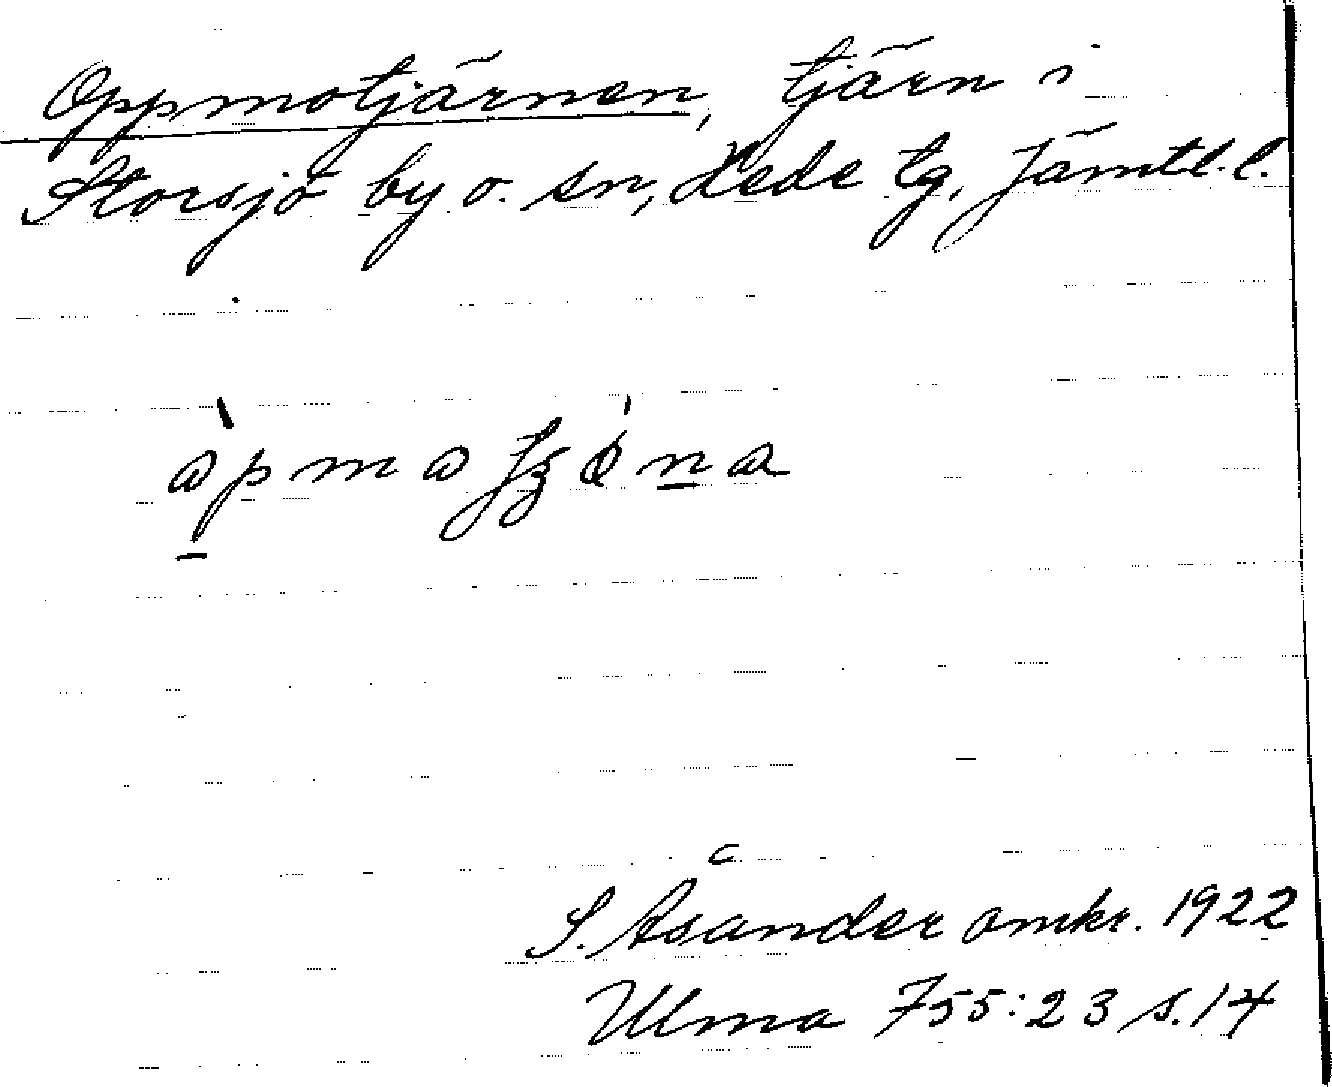 Oppmotjärnen, tjärn i
Storsjö by o. sn, Hede tg, Jämtl. l.
S. Åsander omkr. 1922
Ulma 755:23 s. 14